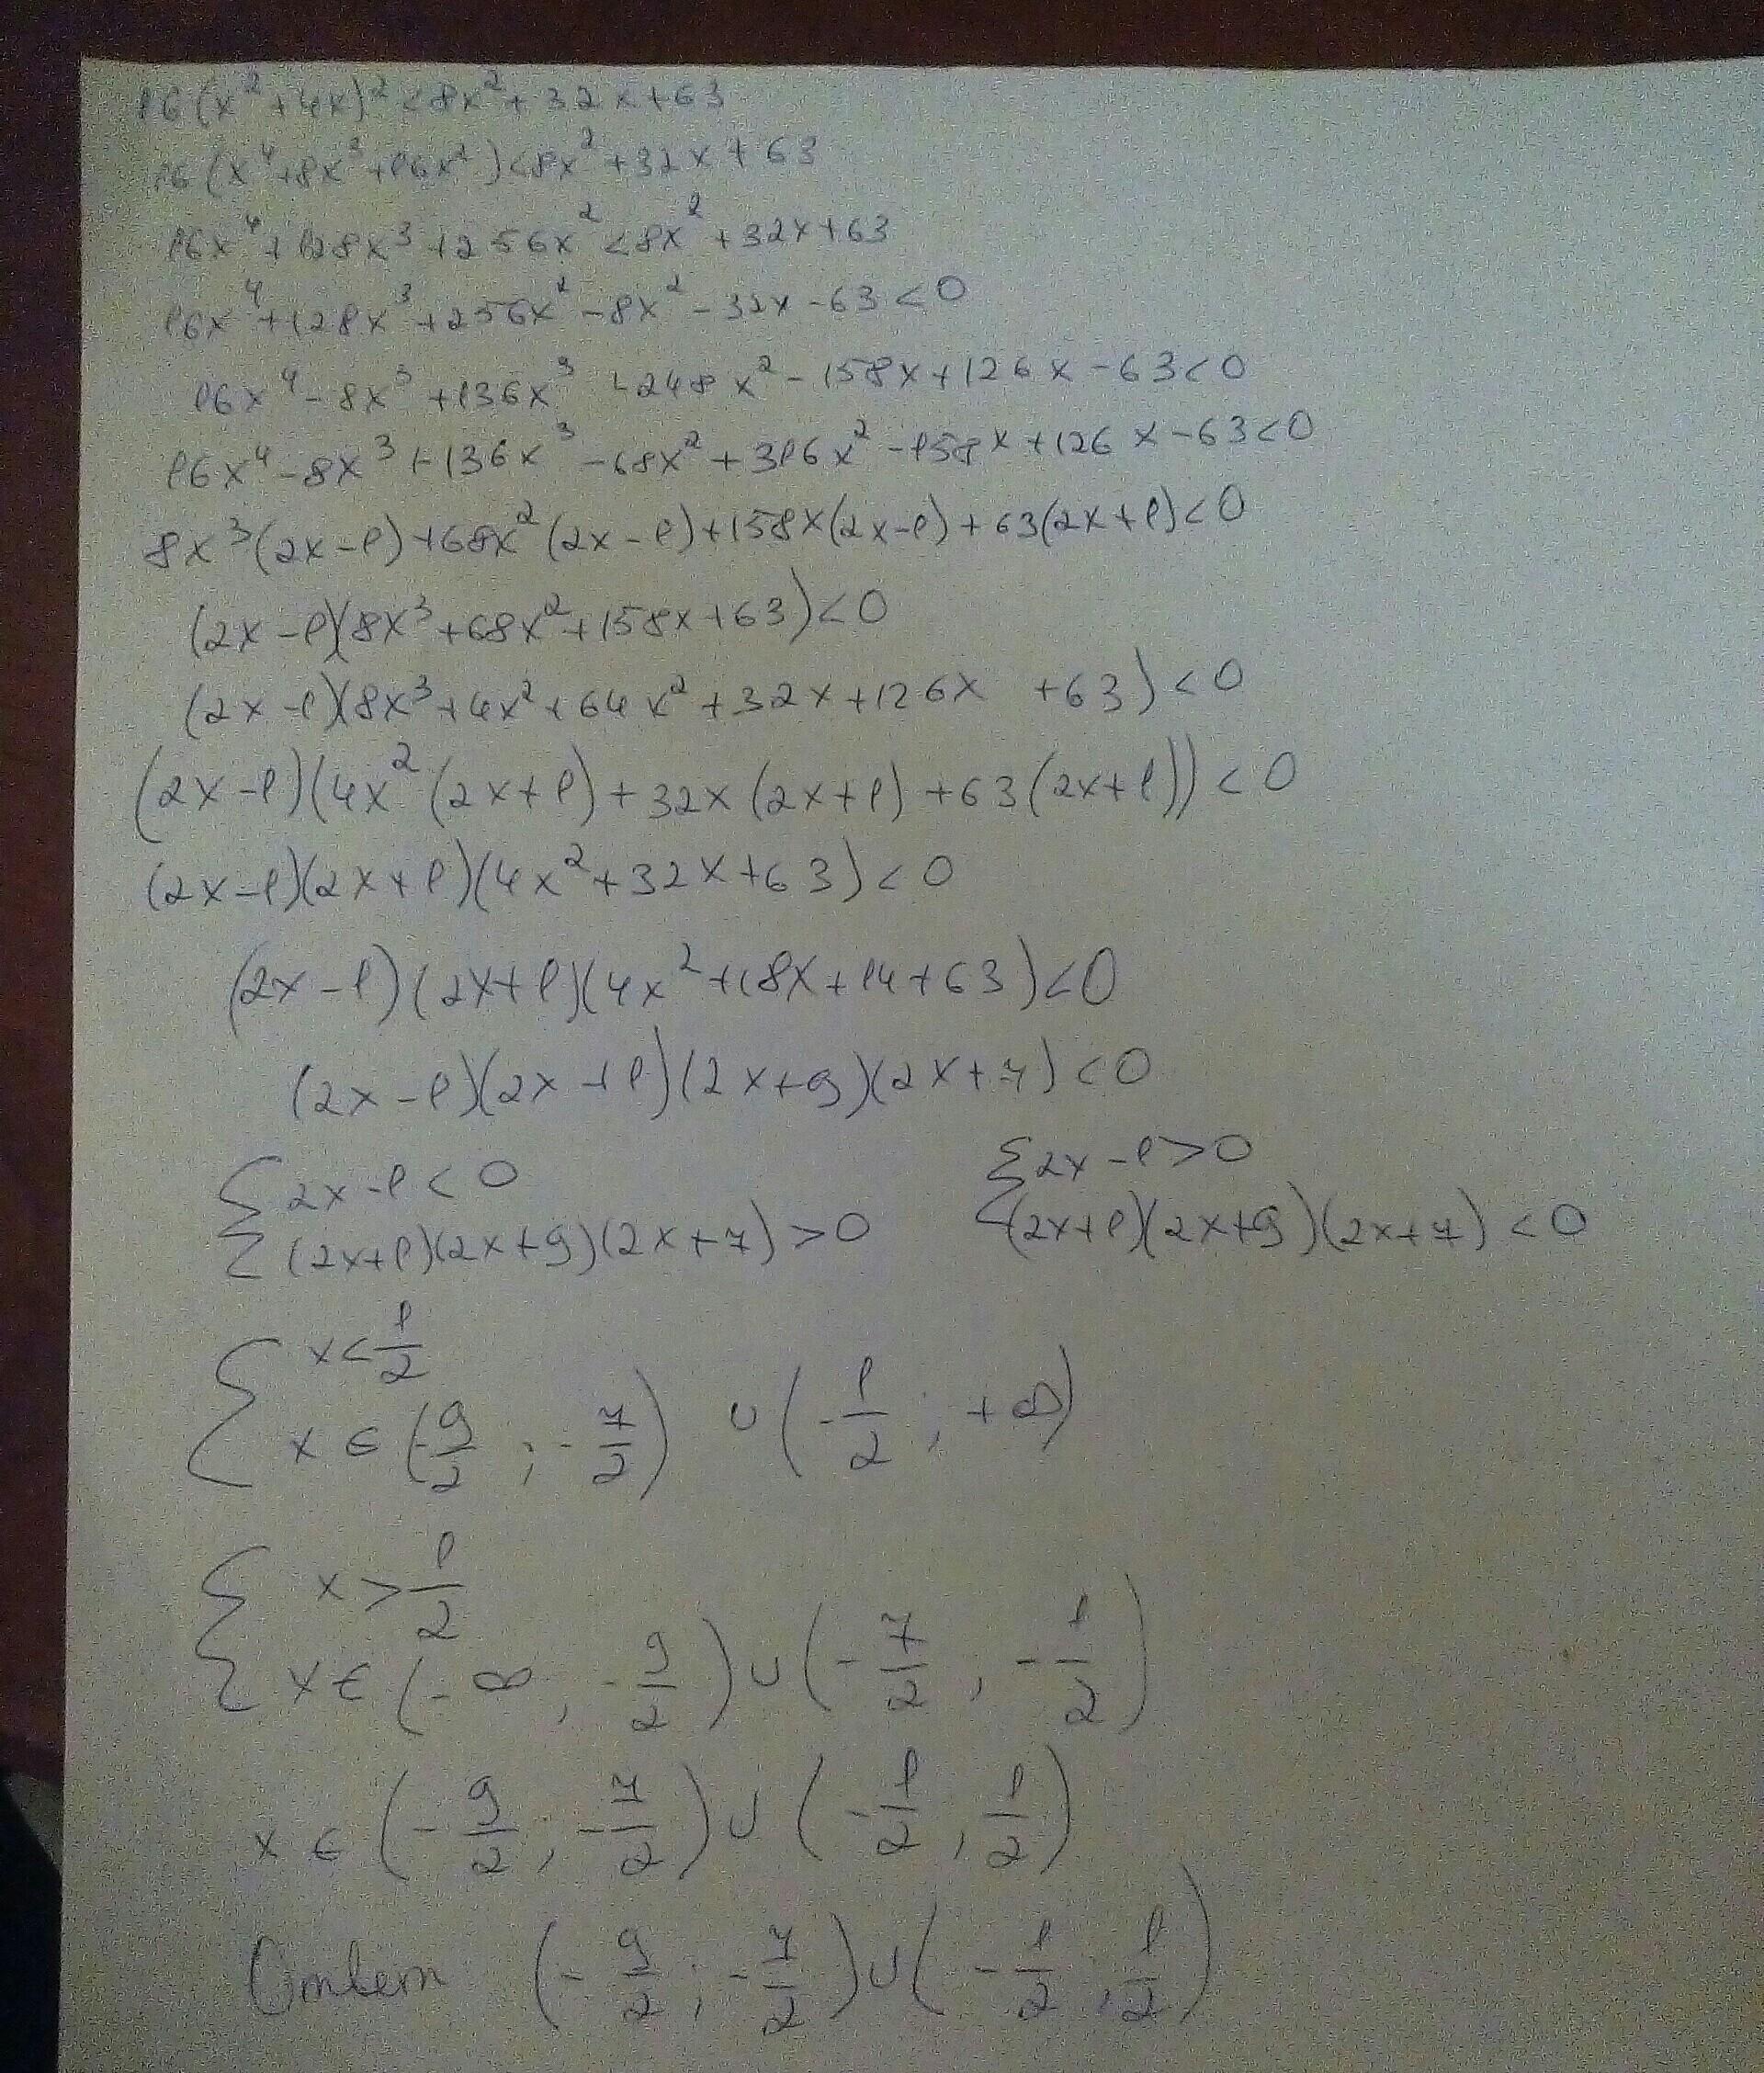 16(x²+4x)²<8x²+32x+63
16(x⁴+8x³+16x²)<8x²+32x+63
16x⁴+128x³+256x²<8x²+32x+63
16x⁴+128x³+256x²-8x²-32x-63<0
16x⁴-8x³+136x³+248x²-158x+126x-63<0
16x⁴-8x³+136x³-68x²+316x²-158x+126x-63<0
8x³(2x-1)+68x²(2x-1)+158x(2x-1)+63(2x+1)<0
(2x-1)(8x³+68x²+158x+63)<0
(2x-1)(8x³+4x²+64x²+32x+126x +63)<0
(2x-1)(4x²(2x+1)+32x(2x+1)+63(2x+1))<0
(2x-1)(2x+1)(4x²+32x+63)<0
(2x-1)(2x+1)(4x²+18x+14+63)<0
(2x-1)(2x+1)(2x+9)(2x+7)<0
{2x-1<0 {2x-1>0
(2x+1)(2x+9)(2x+7)>0 (2x+1)(2x+9)(2x+7)<0
{x<1/2
x∈(-9/2;-7/2) ∪(-1/2;+∞)
{x>1/2
x∈(-∞,-9/2)∪(-7/2,-1/2)
x∈(-9/2;-7/2)∪(-1/2,1/2)
Ответ (-9/2;-7/2)∪(-1/2,1/2)